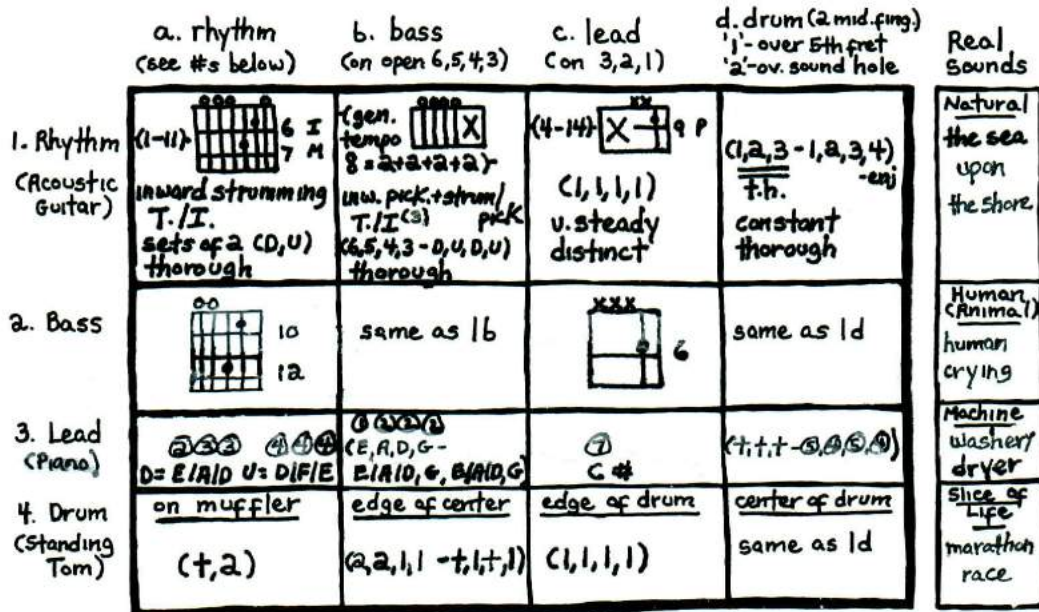 a. rhythm
(see #s below)
b. bass
(on open 6,5,4,3)
c. lead
(on 3,2,1)
d. drum (2 mid. fing.)
'1'- over 5th fret
'2'- ov. sound hole
Real
Sounds
1. Rhythm
(Acoustic
Guitar)
(1-11)
6 I
7 M
inward strumming
T./I.
sets of 2 (D,U)
thorough
(gen.
tempo
8 = 2+2+2+2)-
X
inw. pick.+strum/
T./I(3) pick
(6,5,4,3 - D,U,D,U)
thorough
(4-14)
xx
X
9 P
(1,1,1,1)
v. steady
distinct
(1,2,3 - 1,2,3,4)
t.h. -enj
constant
thorough
Natural
the sea
upon
the shore
2. Bass
10
12
same as 1b
xxx
6
same as 1d
Human
(Animal)
human
crying
3. Lead
(Piano)
2 3 3 4 4 4
D= E/A/D U= D/F/E
(E,A,D,G-
E/A/D, G, E/A/D,G)
7
C #
Machine
washer/
dryer
4. Drum
(Standing
Tom)
on muffler
(+,2)
edge of center
(2,2,1,1 -+,1,+,1)
edge of drum
(1,1,1,1)
center of drum
same as 1d
Slice of
Life
marathon
race